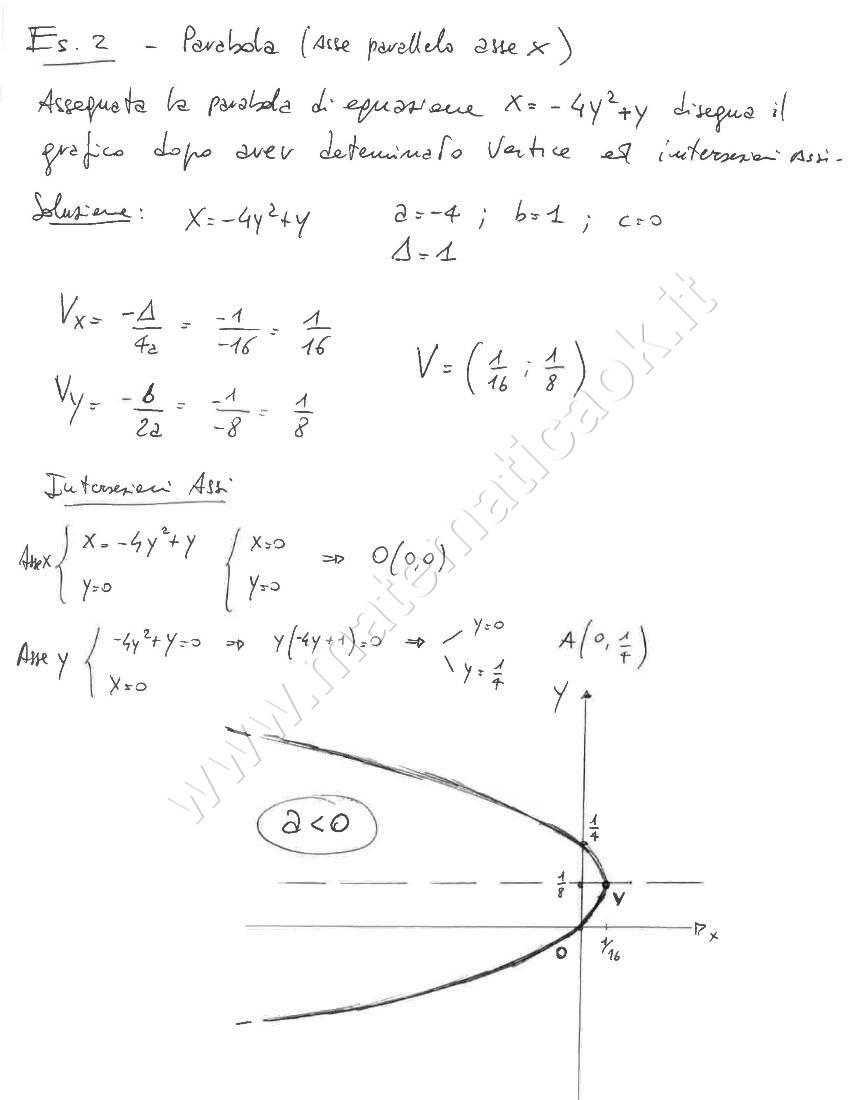 Es. 2 - Parabola (Asse parallelo asse x)
Assegnata la parabola di equazione x = -4y²+y disegna il
grafico dopo aver determinato Vertice ed intersezioni Assi.
Soluzione: x = -4y²+y a = -4 ; b = 1 ; c = 0
Δ = 1
Vx = -Δ/4a = -1/-16 = 1/16
V = (1/16 ; 1/8)
Vy = -b/2a = -1/-8 = 1/8
Intersezioni Assi
Asse x { x = -4y²+y { x=0 ⇒ O(0,0)
y=0 y=0
Asse y { -4y²+y=0 ⇒ y(-4y+1)=0 ⇒ y=0 A(0, 1/4)
x=0 y=1/4
y
a<0
1/4
1/8
V
x
O
1/16
www.matematicaok.it